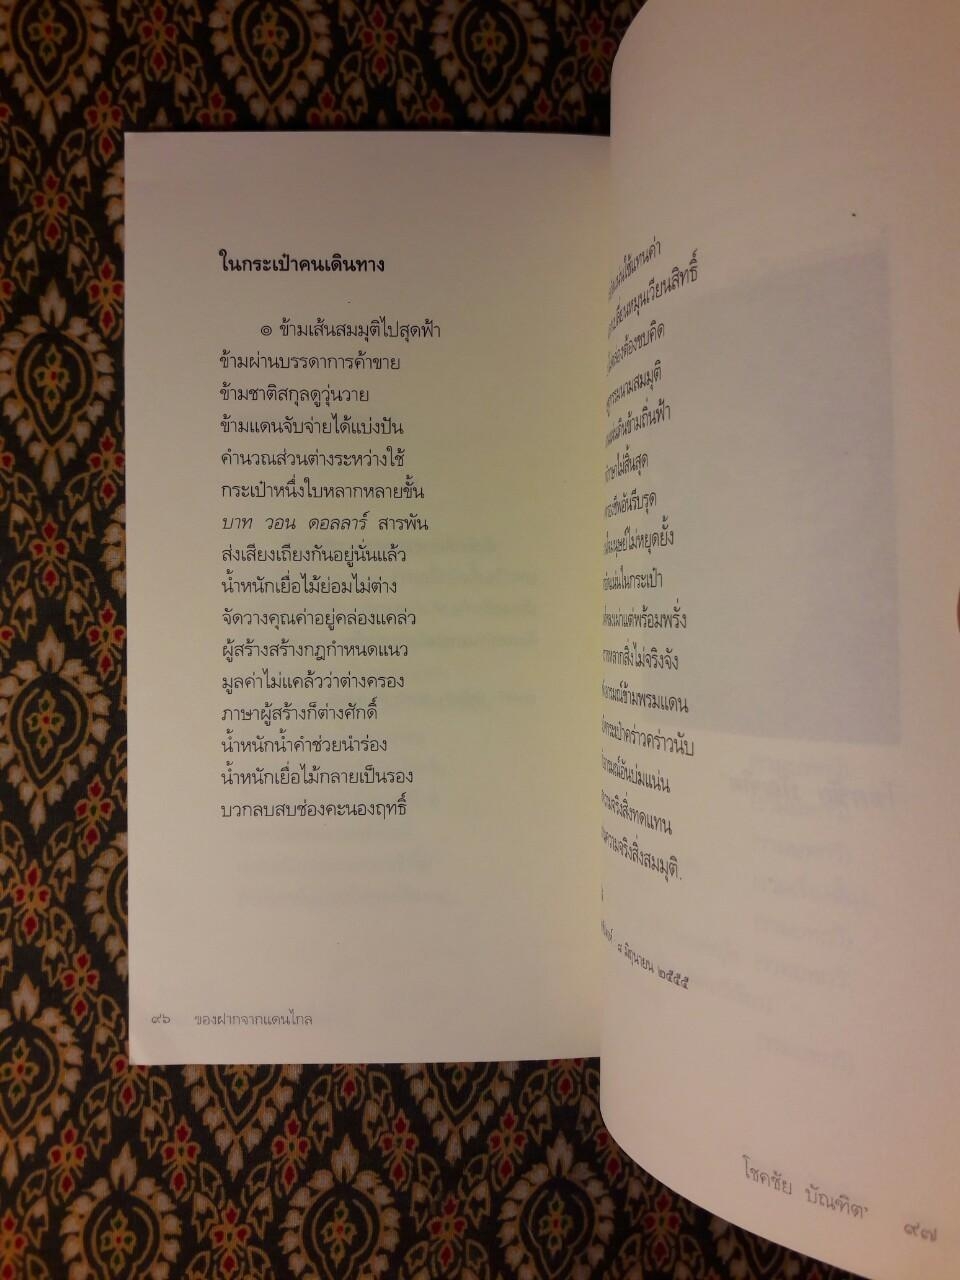 ในกระเป๋าคนเดินทาง
๏ ข้ามเส้นสมมุติไปสุดฟ้า
ข้ามผ่านบรรดาการค้าขาย
ข้ามชาติสกุลดูวุ่นวาย
ข้ามแดนจับจ่ายได้แบ่งปัน
คำนวณส่วนต่างระหว่างใช้
กระเป๋าหนึ่งใบหลากหลายขั้น
บาท วอน ดอลลาร์ สารพัน
ส่งเสียงเถียงกันอยู่นั่นแล้ว
น้ำหนักเยื่อไม้ย่อมไม่ต่าง
จัดวางคุณค่าอยู่คล่องแคล่ว
ผู้สร้างสร้างกฎกำหนดแนว
มูลค่าไม่แคล้วว่าต่างครอง
ภาษาผู้สร้างก็ต่างศักดิ์
น้ำหนักน้ำคำช่วยนำร่อง
น้ำหนักเยื่อไม้กลายเป็นรอง
บวกลบสบช่องคะนองฤทธิ์
๙๖ ของฝากจากแดนไกล
ใช้แทนค่า
หมุนเวียนสิทธิ์
ต้องขบคิด
นามสมมุติ
ข้ามถิ่นฟ้า
ไม่สิ้นสุด
อันรีบรุด
ไม่หยุดยั้ง
ในกระเป๋า
แต่พร้อมพรั่ง
หลากสิ่งไม่จริงจัง
ข้ามพรมแดน
คร่าวคร่าวนับ
อันบ่มแน่น
ความจริงสิ่งทดแทน
ความจริงสิ่งสมมุติ.
๘ มิถุนายน ๒๕๕๕
โชคชัย บัณฑิต' ๙๗